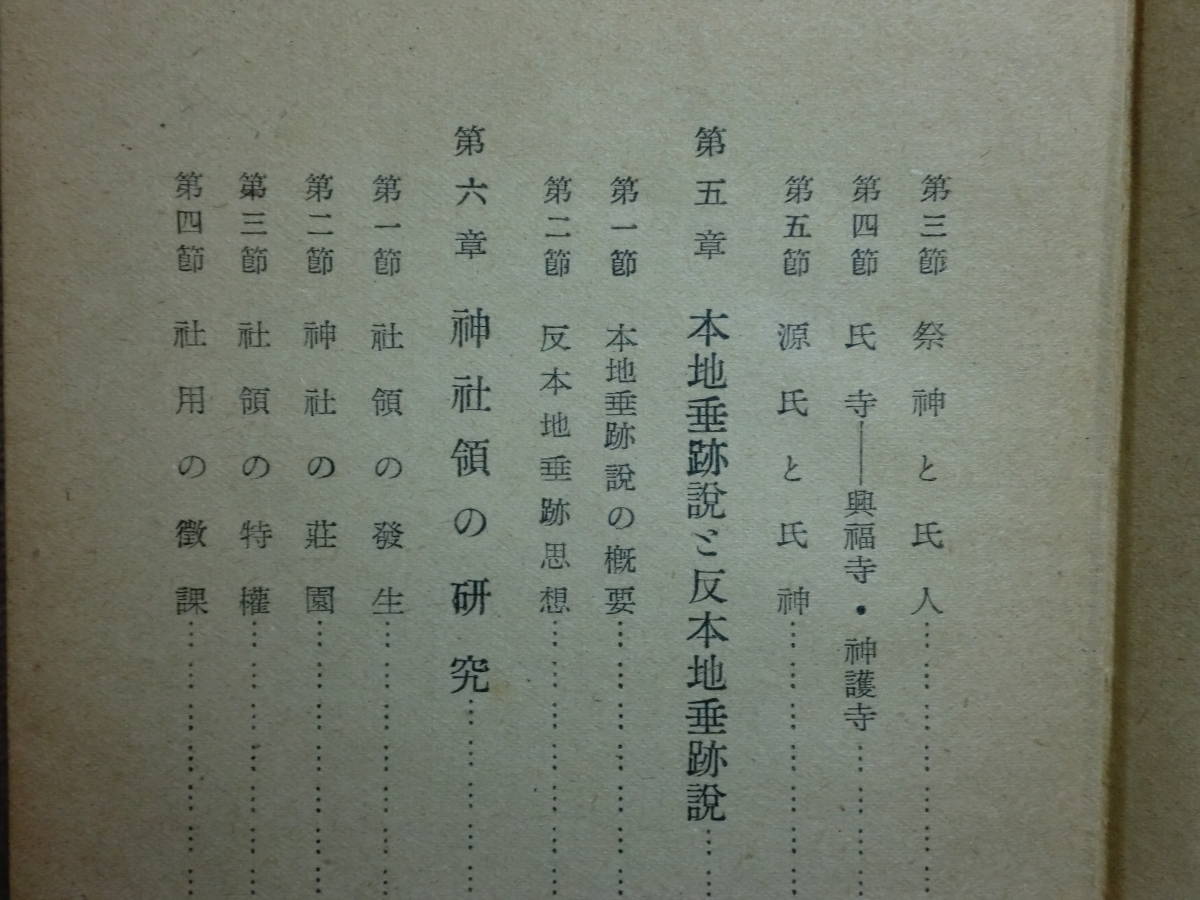 第三節 祭神と氏人……………
第四節 氏寺――興福寺・神護寺……
第五節 源氏と氏神……………
第五章 本地垂跡說と反本地垂跡說……
第一節 本地垂跡說の槪要……………
第二節 反本地垂跡思想……………
第六章 神社領の硏究……………
第一節 社領の發生……………
第二節 神社の莊園……………
第三節 社領の特權……………
第四節 社用の徵課……………